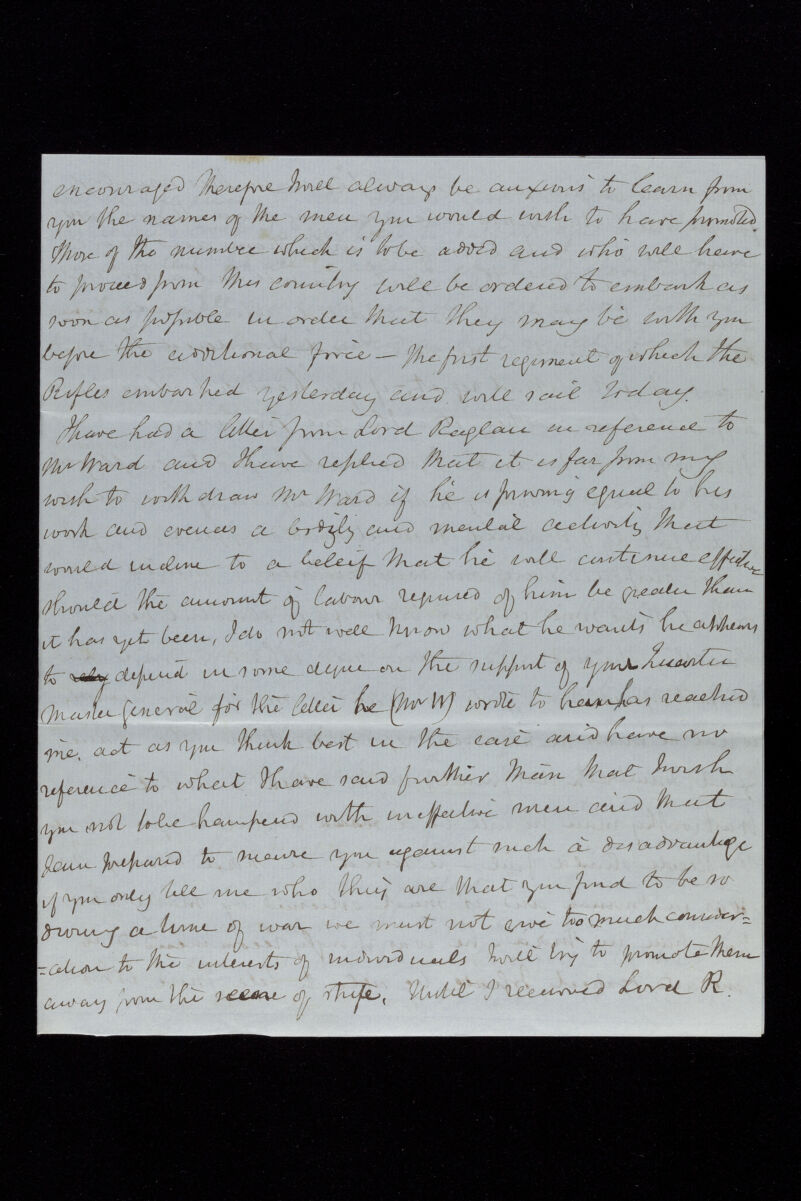 encouraged therefore I will always be anxious to learn from
you the names of the men you would wish to have promoted.
Those of the number which is to be added and who will have
to proceed from this country will be ordered to embark as
soon as possible in order that they may be with you
before the additional force – the first regiment of which the
Rifles embarked yesterday and will sail today.
I have had a letter from Lord Raglan in reference to
Mr Ward and I have replied that it is far from my
wish to withdraw Mr Ward if he is proving equal to his
work and evinces a bodily and mental activity that
would incline to a beleif that he will continue effective
should the amount of labour required of him be greater than
it has yet been, I do not well know what he wants he appears
to rely depend in some degree on the support of your Quarter
Master General for the letter he (Mr W) wrote to has reached
me. act as you think best in the case and have no
reference to what I have said further than that I wish
you not to be hampered with ineffective men and that
I am prepared to secure you against such a disadvantage
if you only tell me who they are that you find to be so
During a time of war we must not give too much consider=
=ation to the interests of individuals I will try to promote them
away from the scene of strife. Until I received Lord R.